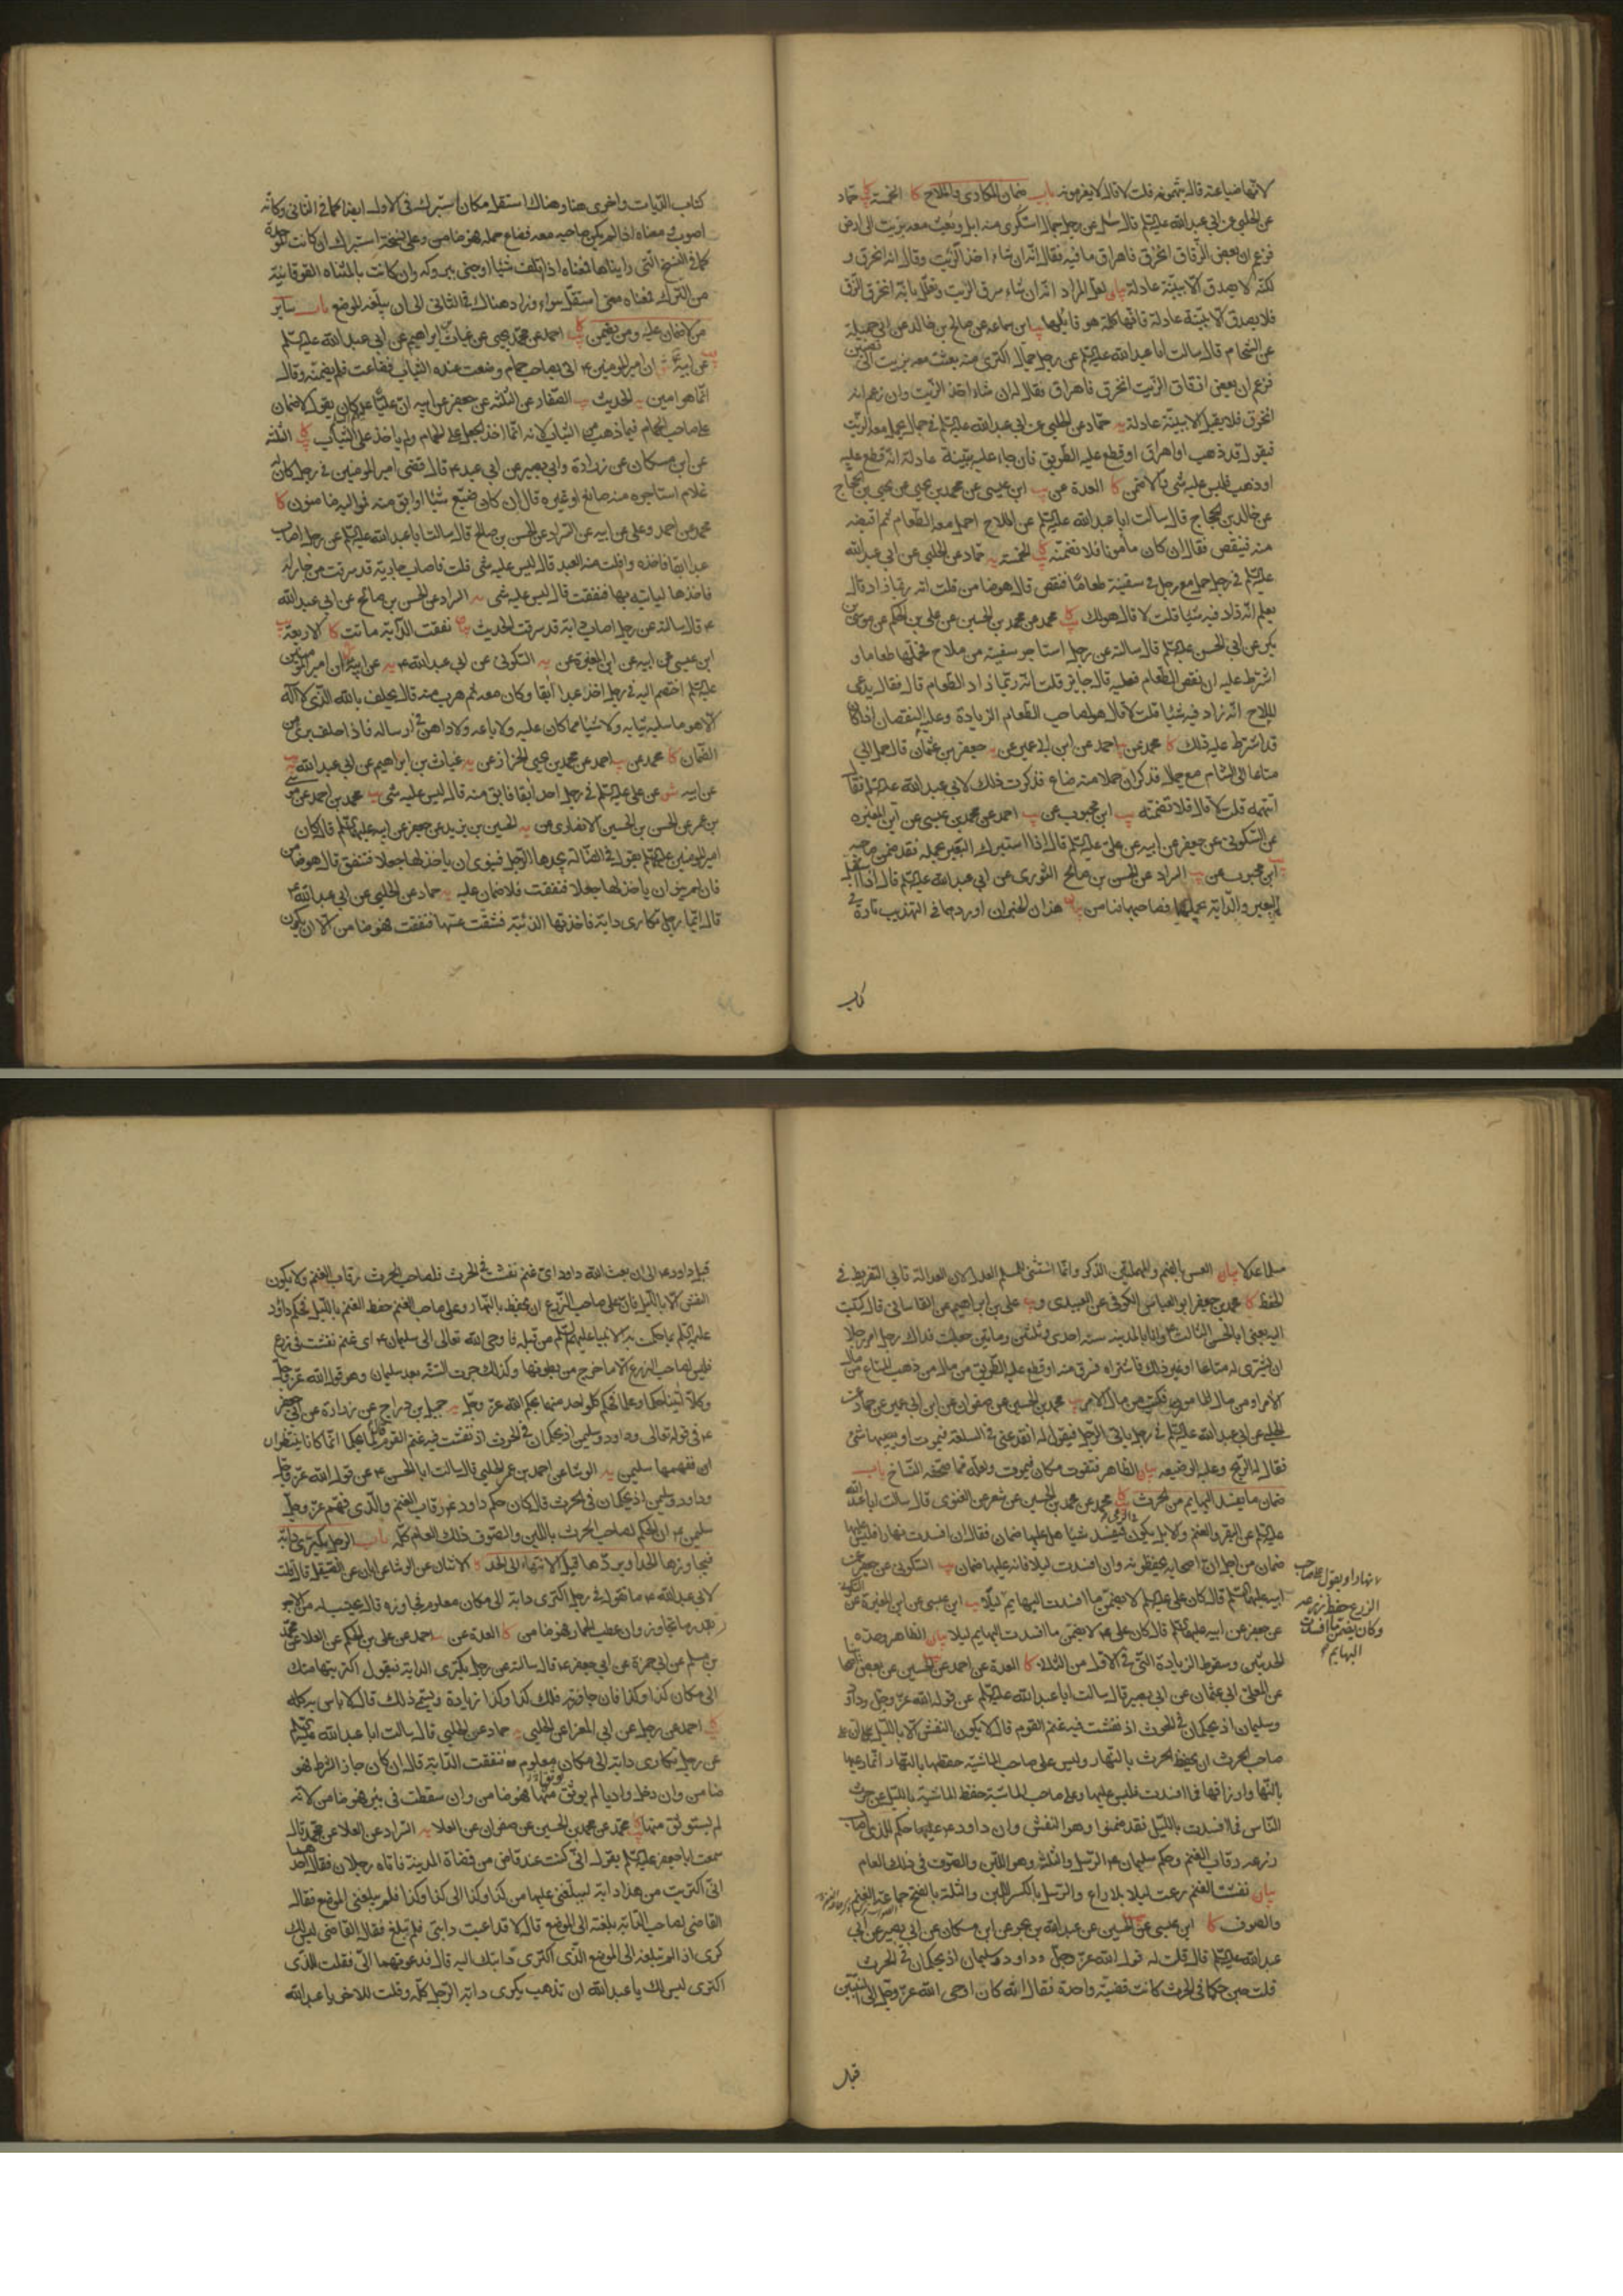 لانها ضياعته قال يتهمونه قلت لا قال لا يغرمونه باب ضمان المكاري والملاح كا الخمسة حماد
عن الحلبي عن ابي عبد الله عليه السلم قال سئل عن رجل جمال استكرى منه ابل وبعث معه بزيت الى ارض
فزعم ان بعض الزقاق انخرق فاهراق ما فيه فقال انه ان شاء اخذ الزيت وقال انه انخرق و
لكنه لا يصدق الا ببينة عادلة بيان لعل المراد انه ان شاء سرق الزيت وتعلل بانه انخرق الزق
فلا يصدق الا ببينة عادلة فانها كلمة هو قايلها ابن سماعه عن صالح بن خالد عن ابي جميلة
عن الشحام قال سالت ابا عبد الله عليه السلم عن رجل جمال اكترى منه بعث معه بزيت الى نصيبين
فزعم ان بعض ازقاق الزيت انخرق فاهراق فقال له ان شاء اخذ الزيت وان زعم انه
انخرق فلا يقبل الا ببينة عادلة يه حماد عن الحلبي عن ابي عبد الله عليه السلم في جمال يحمل معه الزيت
فيقول قد ذهب او اهراق او قطع عليه الطريق فان جاء عليه ببينة عادلة انه قطع عليه
او ذهب فليس عليه شئ والا ضمن كا العدة عن ابن عيسى عن محمد بن يحيى عن يحيى بن الحجاج
عن خالد بن الحجاج قال سالت ابا عبد الله عليه السلم عن الملاح احمل معه الطعام ثم اقبضه
منه فينقص فقال ان كان مأمونا فلا تضمنه الخمسة يه حماد عن الحلبي عن ابي عبد الله
عليه السلم في رجل حمل مع رجل في سفينة طعاما فنقص قال هو ضامن قلت انه ربما زاد قال
يعلم انه زاد فيه شيئا قلت لا قال هو لك محمد عن محمد بن الحسين عن علي بن الحكم عن موسى بن
بكر عن ابي الحسن عليه السلم قال سالته عن رجل استاجر سفينة من ملاح فحملها طعاما و
اشترط عليه ان نقص الطعام فعليه قال جايز قلت انه ربما زاد الطعام قال فقال يدعى
الملاح انه زاد فيه شيئا قلت لا قال هو لصاحب الطعام الزيادة وعليه النقصان اذا كان
قد اشترط عليه ذلك كا محمد عن احمد عن ابن ابي عمير عن يه جعفر بن عثمان قال حمل ابي
متاعا الى الشام مع جمال فذكر ان حملا منه ضاع فذكرت ذلك لابي عبد الله عليه السلم فقال
اتتهمه قلت لا قال فلا تضمنه ابن محبوب عن احمد عن محمد بن عيسى عن ابن المغيره
عن السكوني عن جعفر عن ابيه عن علي عليه السلم قال اذا استبرك البعير بحمله فقد ضمن صاحبه
ابن محبوب عن السراد عن الحسن بن صالح الثوري عن ابي عبد الله عليه السلم قال اذا استقل
البعير والدابة بحملهما فصاحبهما ضامن بيان هذان الخبران اوردهما في التهذيب تارة في
كتاب
كتاب الديات واخرى هنا وهناك استقل مكان استبرك في الاول ايضا كما في الثاني وكانه
اصوب ومعناه اذا لم يكن صاحبه معه فضاع حمله فهو ضامن وعلى نسخة استبرك ان كانت بالموحدة
كما في النسخ التي رايناها فمعناه اذا اتلف شيئا او جنى ببروكه وان كانت بالمثناه الفوقانية
من الترك فمعناه معنى استقل سواء وزاد هناك في الثاني الى ان يبلغه الموضع باب ساير
من لا ضمان عليه ومن يضمن احمد عن محمد بن يحيى عن غياث بن ابراهيم عن ابي عبد الله عليه السلم
عن ابيه ان امير المومنين ع اتى بصاحب حمام وضعت عنده الثياب فضاعت فلم يضمنه وقال
انما هو امين الحديث الصفار عن الثلثه عن جعفر عن ابيه ان عليا عليه السلم كان يقول لا ضمان
على صاحب الحمام فيما ذهب من الثياب لانه انما اخذ الجعل على الحمام ولم ياخذ على الثياب الثلثه
عن ابن مسكان عن زرارة وابي بصير عن ابي عبد ع قال قضى امير المومنين في رجل كان له
غلام استاجره منه صانع او غيره قال ان كان ضيع شيئا او ابق منه فمواليه ضامنون كا
محمد عن احمد وعلي عن ابيه عن السراد عن الحسن بن صالح قال سالت ابا عبد الله عليه السلم عن رجل اصاب
عبدا ابقا فاخذه وافلت منه العبد قال ليس عليه شئ قلت فاصاب جارية قد سرقت من جار له
فاخذها لياتيه بها فنفقت قال ليس عليه شئ يه السراد عن الحسن بن صالح عن ابي عبد الله
ع قال سالته عن رجل اصاب دابة قد سرقت الحديث بيان نفقت الدابة ماتت كا الاربعة
ابن عيسى عن ابيه عن ابن المغيرة عن يه السكوني عن ابي عبد الله ع عن ابيه ان امير المومنين
عليه السلم اختصم اليه في رجل اخذ عبدا ابقا وكان معه ثم هرب منه قال يحلف بالله الذي لا اله
الا هو ما سلبه ثيابه ولا شيئا مما كان عليه ولا باعه ولا داهن في ارساله فاذا حلف برئ من
الضمان كا محمد عن احمد عن محمد بن يحيى الخزاز عن يه غياث بن ابراهيم عن ابي عبد الله
عن ابيه عن علي عليه السلم في رجل اخذ ابقا فابق منه قال ليس عليه شئ محمد بن احمد عن موسى
بن عمر عن الحسن بن الحسين الانصاري عن يه الحسين بن زيد عن جعفر عن ابيه عليهما السلم قال كان
امير المومنين عليه السلم يقول في الضالة يجدها الرجل فينوى ان ياخذ لها جعلا فتنفق قال هو ضامن
فان لم ينو ان ياخذ لها جعلا فنفقت فلا ضمان عليه يه حماد عن الحلبي عن ابي عبد الله ع
قال ايما رجل تكارى دابة فاخذتها الذئبة فشقت عينها فنفقت فهو ضامن الا ان يكون
مسلما عدلا بيان
الحفظ كا محمد بن جعفر ابو العباس الكوفي عن العبيدي و علي بن ابراهيم عن القاساني قال كتبت
اليه يعني ابا الحسن الثالث ع وانا بالمدينه سنة احدى وثلثين ومايتين جعلت فداك رجل امر رجلا
ان يشتري له متاعا او غير ذلك فاشتراه فسرق منه او قطع عليه الطريق من مال من ذهب المتاع من مال
الامر او من مال المامور فكتب من مال الامر محمد بن الحسين عن صفوان عن ابن ابي عمير عن حماد عن
الحلبي عن ابي عبد الله عليه السلم في رجل ياتي الرجل فيقول له انقد عني في السلعة فيموت او يصيبها شئ
فقال له الربح وعليه الوضيعه بيان الظاهر فتفوت مكان فيموت ولعله مما صحفه النساخ باب
ضمان ما يفسد البهايم من الحرث محمد عن محمد بن الحسين عن شعر عن الغنوى قال سالت ابا عبد الله
عليه السلم عن البقر والغنم والابل يكون في الرعى فتفسد شيئا هل عليها ضمان فقال ان افسدت نهارا فليس عليها
ضمان من اجل ان اصحابه يحفظونه وان افسدت ليلا فانه عليها ضمان السكوني عن جعفر عن
ابيه عليهما السلم قال كان علي عليه السلم لا يضمن ما افسدت البهايم ليلا ابن عيسى عن ابن المغيرة عن السكوني
عن جعفر عن ابيه عليهما السلم قال كان علي ع لا يضمن ما افسدت البهايم ليلا بيان الظاهر وحدة
الحديثين وسقوط الزيادة التي في الاول من الثاني كا العدة عن احمد عن الحسين عن بعض اصحابنا
عن المعلى ابي عثمان عن ابي بصير قال سالت ابا عبد الله عليه السلم عن قول الله عز وجل وداود
وسليمان اذ يحكمان في الحرث اذ نفشت فيه غنم القوم قال لا يكون النفش الا بالليل ان على
صاحب الحرث ان يحفظ الحرث بالنهار وليس على صاحب الماشية حفظها بالنهار انما رعيها
بالنهار وارزاقها فما افسدت فليس عليها وعلى صاحب الماشية حفظ الماشية بالليل عن حرث
الناس فما افسدت بالليل فقد ضمنوا وهو النفش وان داود ع حكم للذي اصاب
زرعه رقاب الغنم وحكم سليمان ع الرسل والثلة وهو اللبن والصوف في ذلك العام
بيان نفشت الغنم رعت ليلا بلا راع والرسل بالكسر اللبن والثلة بالفتح جماعة الغنم
والصوف كا ابن عيسى عن الحسين عن عبد الله بن بحر عن ابن مسكان عن ابي بصير عن ابي
عبد الله عليه السلم قال قلت له قول الله عز وجل وداود وسليمان اذ يحكمان في الحرث
قلت حين حكما في الحرث كانت قضية واحدة فقال انه كان اوحى الله عز وجل الى النبيين
قبل
لا نهارا ويقول على صاحب
الزرع حفظ زرعه
وكان يضمن ما افسدت
البهايم
قبل داود ع الى ان بعث الله داود اى غنم نفشت في الحرث فلصاحب الحرث رقاب الغنم ولا يكون
النفش الا بالليل فان على صاحب الزرع ان يحفظ بالنهار وعلى صاحب الغنم حفظ الغنم بالليل فحكم داود
عليه السلم بما حكمت به الانبياء عليهم السلم من قبله فاوحى الله تعالى الى سليمان ع اى غنم نفشت في زرع
فليس لصاحب الزرع الا ما خرج من بطونها وكذلك جرت السنة بعد سليمان وهو قول الله عز وجل
وكلا آتينا حكما وعلما فحكم كل واحد منهما بحكم الله عز وجل يه جميل بن دراج عن زرارة عن ابي جعفر
ع في قوله تعالى وداود وسليمن اذ يحكمان في الحرث اذ نفشت فيه غنم القوم قال لم يحكما انما كانا يتناظران
ان ففهمها سليمن يه الوشا عن احمد بن عمر الحلبي قال سالت ابا الحسن ع عن قول الله عز وجل
وداود وسليمن اذ يحكمان في الحرث قال كان حكم داود ع رقاب الغنم والذي فهم عز وجل
سليمن ع ان الحكم لصاحب الحرث باللبن والصوف ذلك العام كله باب الرجل يكترى دابة
فيجاوز بها الحد او يردها قبل الانتهاء الى الحد كا الاثنان عن الوشا عن ابان عن الصيقل قال قلت
لابي عبد الله ع ما تقول في رجل اكترى دابة الى مكان معلوم فجاوزه قال يحسب له من الاجر
بقدر ما تجاوز وان عطب الحمار فهو ضامن كا العدة عن احمد عن علي بن الحكم عن العلا عن محمد
بن مسلم عن ابي حمزة عن ابي جعفر ع قال سالته عن رجل يكترى الدابة فيقول اكتريتها منك
الى مكان كذا وكذا فان جاوزته فلك كذا وكذا زيادة ويسمى ذلك قال لا باس به كله
احمد عن رجل عن ابي المغرا عن الحلبي يه حماد عن الحلبي قال سالت ابا عبد الله عليه السلم
عن رجل تكارى دابة الى مكان معلوم فنفقت الدابة قال ان كان جاز الشرط فهو
ضامن وان دخل واديا لم يوثقها فهو ضامن وان سقطت في بئر فهو ضامن لانه
لم يستوثق منها محمد عن محمد بن الحسين عن صفوان عن العلا يه السراد عن العلا عن محمد قال
سمعت ابا جعفر عليه السلم يقول اني كنت عند قاض من قضاة المدينة فاتاه رجلان فقال احدهما
اني اكتريت من هذا دابة ليبلغني عليها من كذا وكذا الى كذا وكذا فلم يبلغني الموضع فقال
القاضي لصاحب الدابة بلغته الى الموضع قال لا قد اعيت دابتي فلم تبلغ فقال القاضي ليس لك
كرى اذا لم تبلغه الى الموضع الذي اكترى دابتك اليه قال فدعوتهما الي فقلت للذي
اكترى ليس لك يا عبد الله ان تذهب بكرى دابة الرجل كله وقلت للاخر يا عبد الله